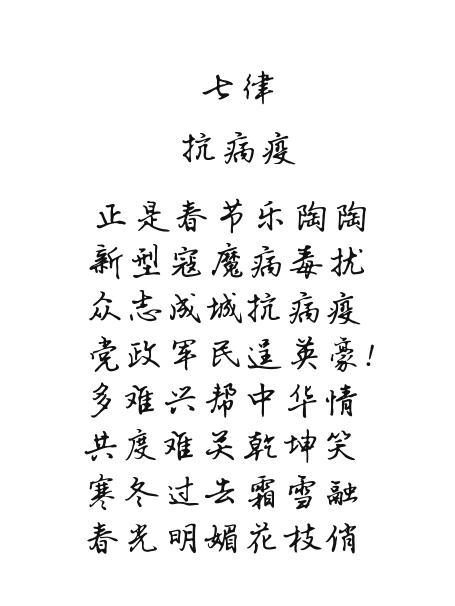 七律
抗病疫
正是春节乐陶陶
新型寇魔病毒扰
众志成城抗病疫
党政军民逞英豪!
多难兴帮中华情
共度难关乾坤笑
寒冬过去霜雪融
春光明媚花枝俏